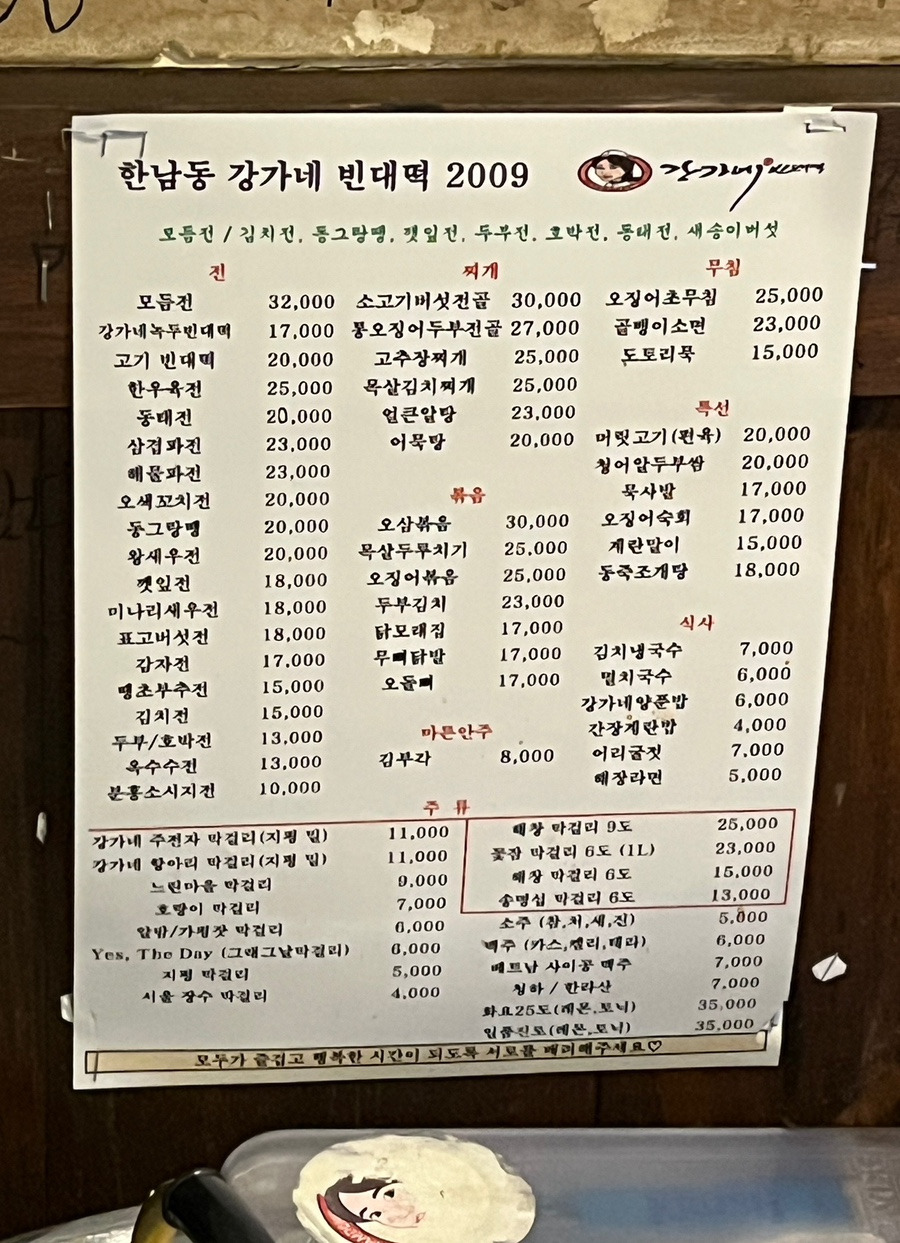 한남동 강가네 빈대떡 2009
강가네
모듬전 / 김치전, 동그랑땡, 깻잎전, 두부전, 호박전, 동태전, 새송이버섯
전
모듬전 32,000
강가네녹두빈대떡 17,000
고기 빈대떡 20,000
한우육전 25,000
동태전 20,000
삼겹파전 23,000
해물파전 23,000
오색꼬치전 20,000
동그랑땡 20,000
왕새우전 20,000
깻잎전 18,000
미나리새우전 18,000
표고버섯전 18,000
감자전 17,000
땡초부추전 15,000
김치전 15,000
두부/호박전 13,000
옥수수전 13,000
분홍소시지전 10,000
찌개
소고기버섯전골 30,000
통오징어두부전골 27,000
고추장찌개 25,000
목살김치찌개 25,000
얼큰알탕 23,000
어묵탕 20,000
볶음
오삼볶음 30,000
목살두루치기 25,000
오징어볶음 25,000
두부김치 23,000
닭모래집 17,000
무뼈닭발 17,000
오돌뼈 17,000
마른안주
김부각 8,000
무침
오징어초무침 25,000
골뱅이소면 23,000
도토리묵 15,000
특선
머릿고기(편육) 20,000
청어알두부쌈 20,000
묵사발 17,000
오징어숙회 17,000
계란말이 15,000
동죽조개탕 18,000
식사
김치냉국수 7,000
멸치국수 6,000
강가네양푼밥 6,000
간장계란밥 4,000
어리굴젓 7,000
해장라면 5,000
주 류
강가네 주전자 막걸리(지평 밀) 11,000
강가네 항아리 막걸리(지평 밀) 11,000
느린마을 막걸리 9,000
호랑이 막걸리 7,000
알밤/가평잣 막걸리 6,000
Yes, The Day (그래그날막걸리) 6,000
지평 막걸리 5,000
서울 장수 막걸리 4,000
해창 막걸리 9도 25,000
꽃잠 막걸리 6도 (1L) 23,000
해창 막걸리 6도 15,000
송명섭 막걸리 6도 13,000
소주 (참,처,새,진) 5,000
맥주 (카스,켈리,테라) 6,000
베트남 사이공 맥주 7,000
청하 / 한라산 7,000
화요25도(레몬,토닉) 35,000
일품진로(레몬,토닉) 35,000
모두가 즐겁고 행복한 시간이 되도록 서로를 배려해주세요♡